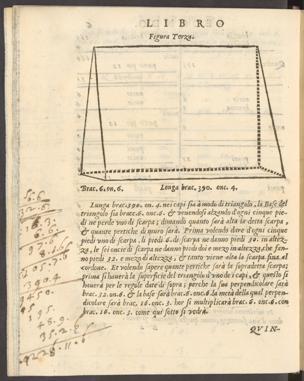 LIBRO
Figura Terza.
Brac. 6. on. 6. Longa brac. 390. onc. 4.
Lunga brac. 390. on. 4. nei capi sia à modo di triangolo, la Base del
triangolo sia brac. 6. onc. 6. & venendosi alzando d'ogni cinque pie-
di ne perde vno di scarpa; dimando quanto sarà alta la detta scarpa,
& quante pertiche di muro sarà. Prima volendo dare d'ogni cinque
piedi vno di scarpa, li piedi 6. di scarpa ne danno piedi 30. in altez-
za, le sei oncie di scarpa ne danno piedi doi e mezo in altezza, che fan-
no piedi 32. e mezo di altezza, & tanto viene alta la scarpa sina al
cordone. Et volendo sapere quante pertiche sarà la sopradetta scarpa;
prima si hauerà la superficie del triangolo d'vno de i capi, & questo si
hauerà per le regole date di sopra; perche la sua perpendiculare sarà
brac. 32. on. 6. & la base sarà brac. 6. onc. 6. la metà della qual perpen-
diculare sarà brac. 16. onc. 3. hor si multiplicarà brac. 6. onc. 6. con
brac. 16. onc. 3. come qui sotto si vedrà.
QVIN-